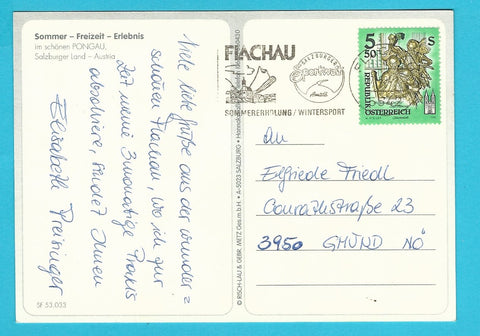 Sommer – Freizeit – Erlebnis
im schönen PONGAU,
Salzburger Land – Austria
Viele liebe Grüße aus der wunder =
schönen Flachau, wo ich zur
Zeit meine 3monatige Praxis
absolviere, sendet Ihnen
Elisabeth Preininger
SF 53.033
© RISCH-LAU & GEBR. METZ Ges.m.b.H • A-5023 SALZBURG •
FLACHAU
SALZBURGER
Sportwelt
Amadé
SOMMERERHOLUNG / WINTERSPORT
5 50 S
REPUBLIK
ÖSTERREICH
An
Elfriede Friedl
Conrathstraße 23
3950 GMÜND NÖ